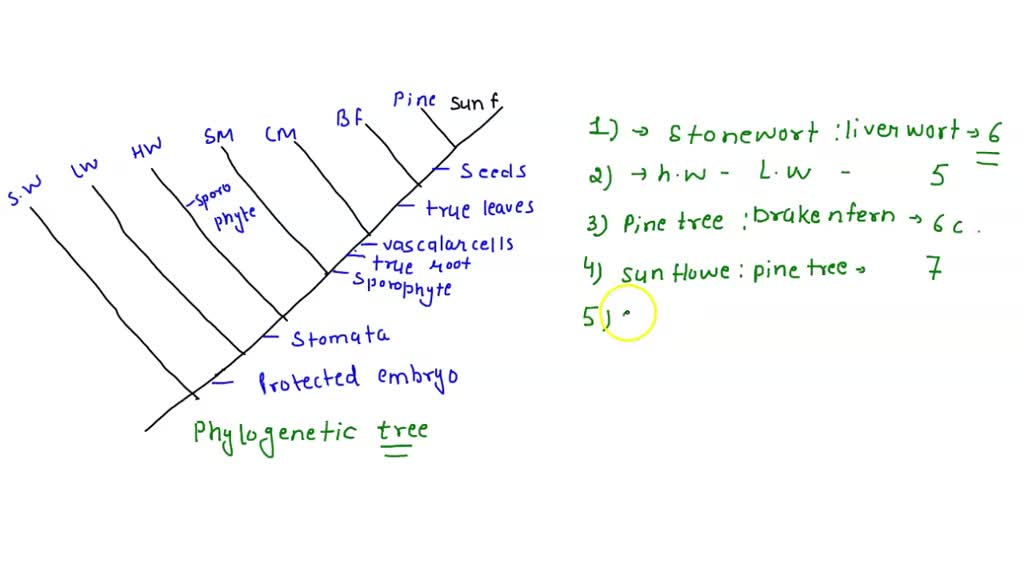 S.W LW HW SM CM BF Pine Sunf.
Seeds
true leaves
sporo
phyte
vascalar cells
true root
Sporophyte
Stomata
Protected embryo
Phylogenetic tree
1) → Stonewort : liver wort → 6
2) → h.w - L.W - 5
3) Pine tree : braken fern → 6 c.
4) sun flowe : pine tree → 7
5) •